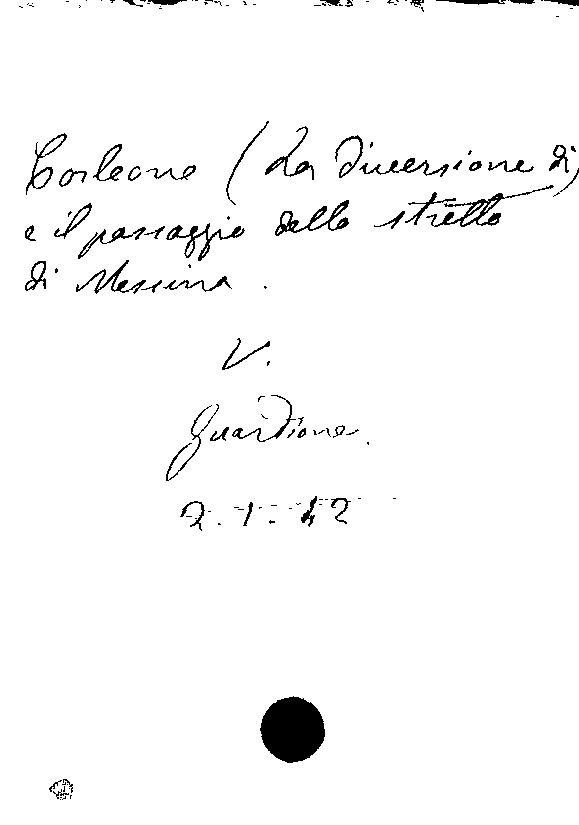 Corleone (La diversione di)
e il passaggio dello stretto
di Messina.
V.
Guardione.
2.1.42